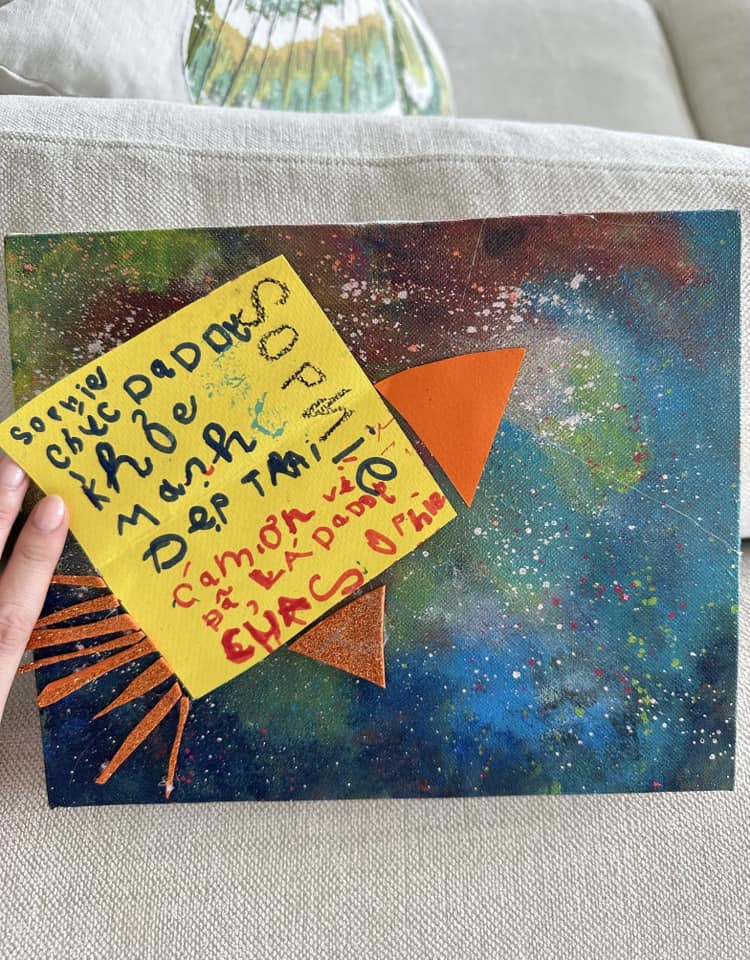 SOPHIE
Sophie
CHÚC DaDDY
khỏe
Mạnh
ĐẸP TRAi
Cảm ơn vì
Đã LÀ DaDDy
CỦA SOPhie